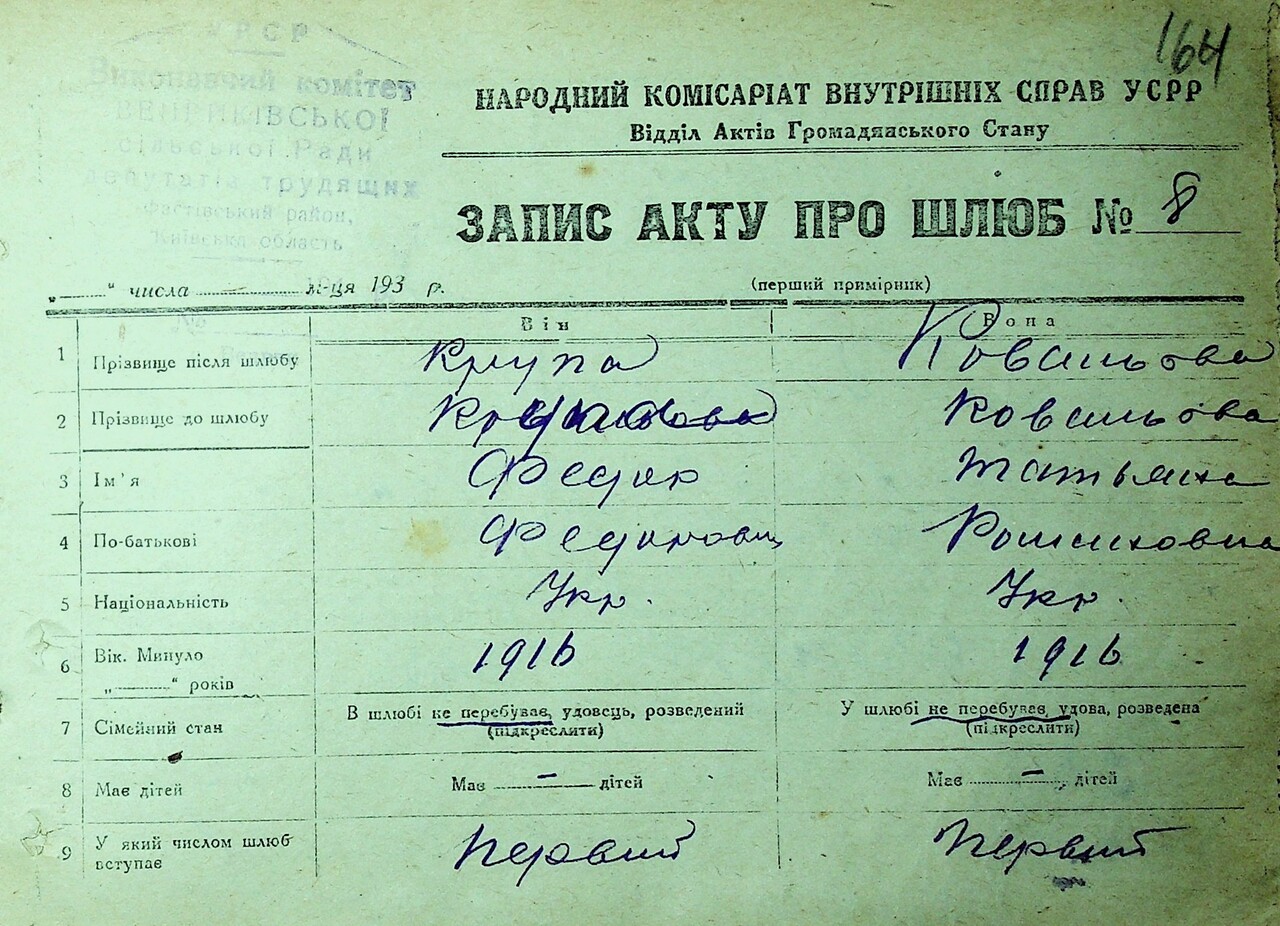 164
УРСР
Виконавчий комітет
ВЕПРИКІВСЬКОЇ
сільської Ради
депутатів трудящих
Фастівський район,
Київська область
НАРОДНИЙ КОМІСАРІАТ ВНУТРІШНІХ СПРАВ УСРР
Відділ Актів Громадянського Стану
ЗАПИС АКТУ ПРО ШЛЮБ № 8
„ “ числа м-ця 193 р. (перший примірник)
Він Вона
1 Прізвище після шлюбу Крупа Ковальова
2 Прізвище до шлюбу Ковальова
3 Ім'я Федор Татьяна
4 По-батькові Федорович Романовна
5 Національність Укр. Укр.
6 Вік. Минуло „ “ років 1916 1916
7 Сімейний стан В шлюбі не перебував, удовець, розведений (підкреслити) У шлюбі не перебував, удова, розведена (підкреслити)
8 Має дітей Має — дітей Має — дітей
9 У який числом шлюб вступає первий первий